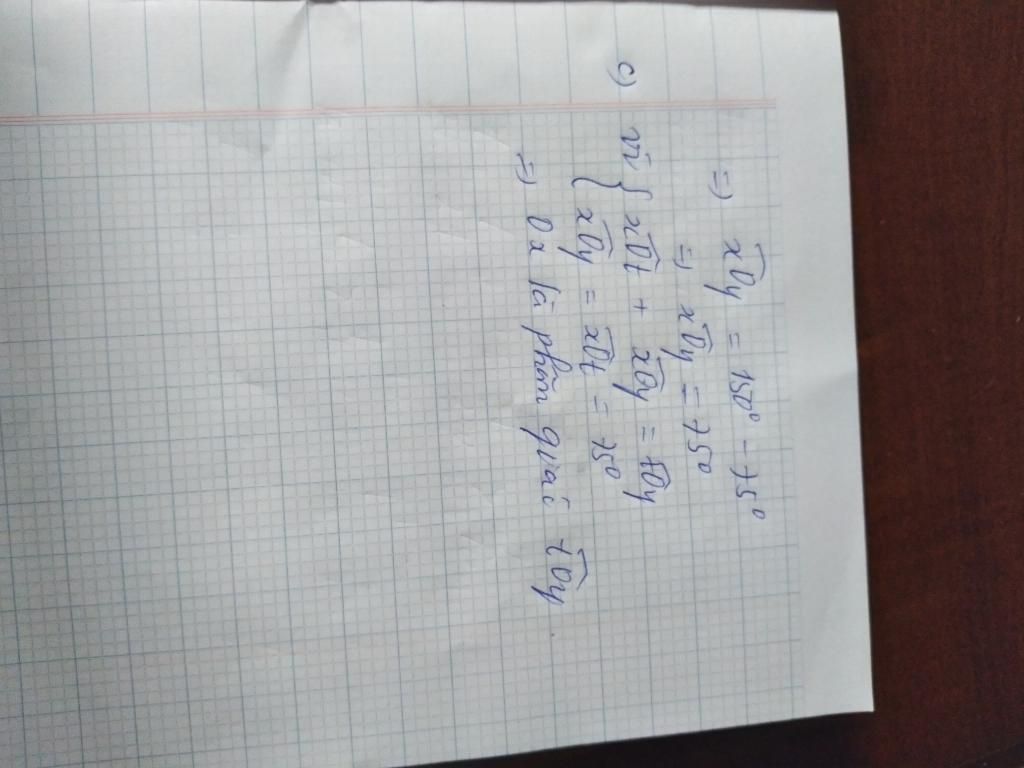 =) x̂Oy = 150° - 75°
=) x̂Oy = 75°
c) Vì { x̂Ot + x̂Oy = t̂Oy
{ x̂Oy = x̂Ot = 75°
=) Ox là phân giác t̂Oy